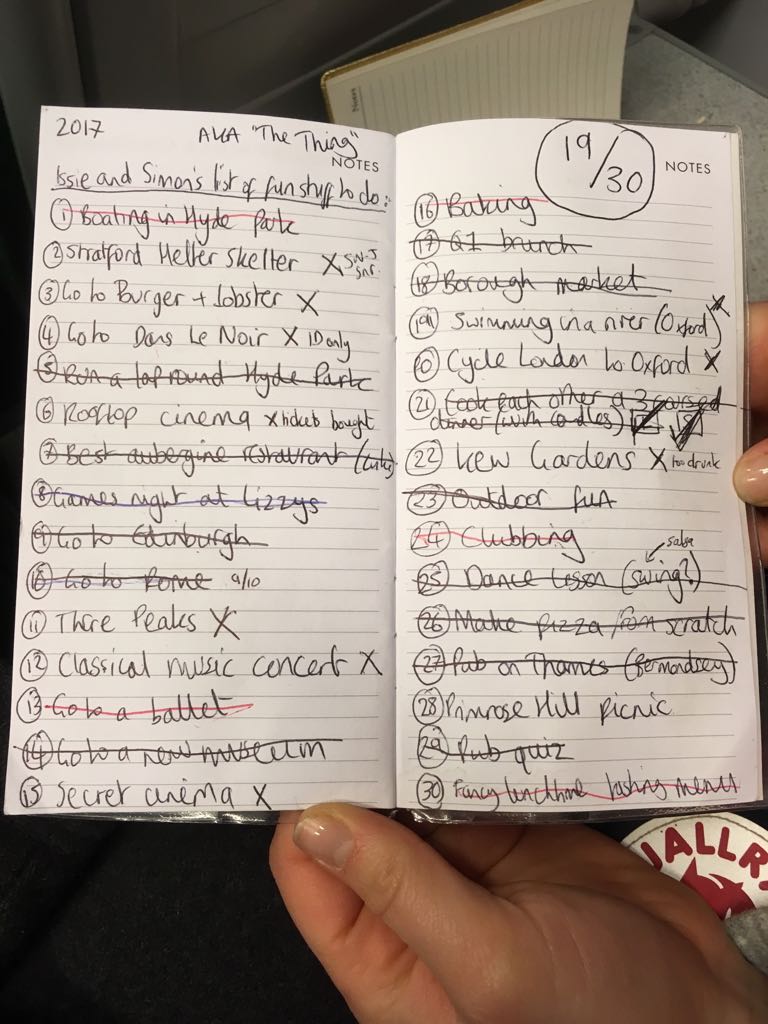 2017
AKA "The Thing"
NOTES
Issie and Simon's list of fun stuff to do:
① Boating in Hyde Park
② Stratford Helter Skelter X SW-J
Snr.
③ Go to Burger + Lobster X
④ Go to Dans Le Noir X ID only
⑤ Run a lap round Hyde Park
⑥ Rooftop cinema x tickets bought
⑦ Best aubergine restaurant
⑧ Games night at Lizzys
⑨ Go to Edinburgh
⑩ Go to Rome 9/10
⑪ Three Peaks X
⑫ Classical music concert X
⑬ Go to a ballet
⑭ Go to a new museum
⑮ Secret cinema X
19/30
NOTES
Notes
⑯ Baking
⑰ G1 brunch
⑱ Borough market
⑲ Swimming in a river (Oxford) X
⑳ Cycle London to Oxford X
㉑ Cook each other a 3 coursed
dinner (with candles)
㉒ Kew Gardens X too drunk
㉓ Outdoor fun
㉔ Clubbing
salsa
㉕ Dance lesson (swing?)
㉖ Make pizza from scratch
㉗ Pub on Thames (Bermondsey)
㉘ Primrose Hill picnic
㉙ Pub quiz
㉚ Fancy lunchtime tasting menu
JALLR